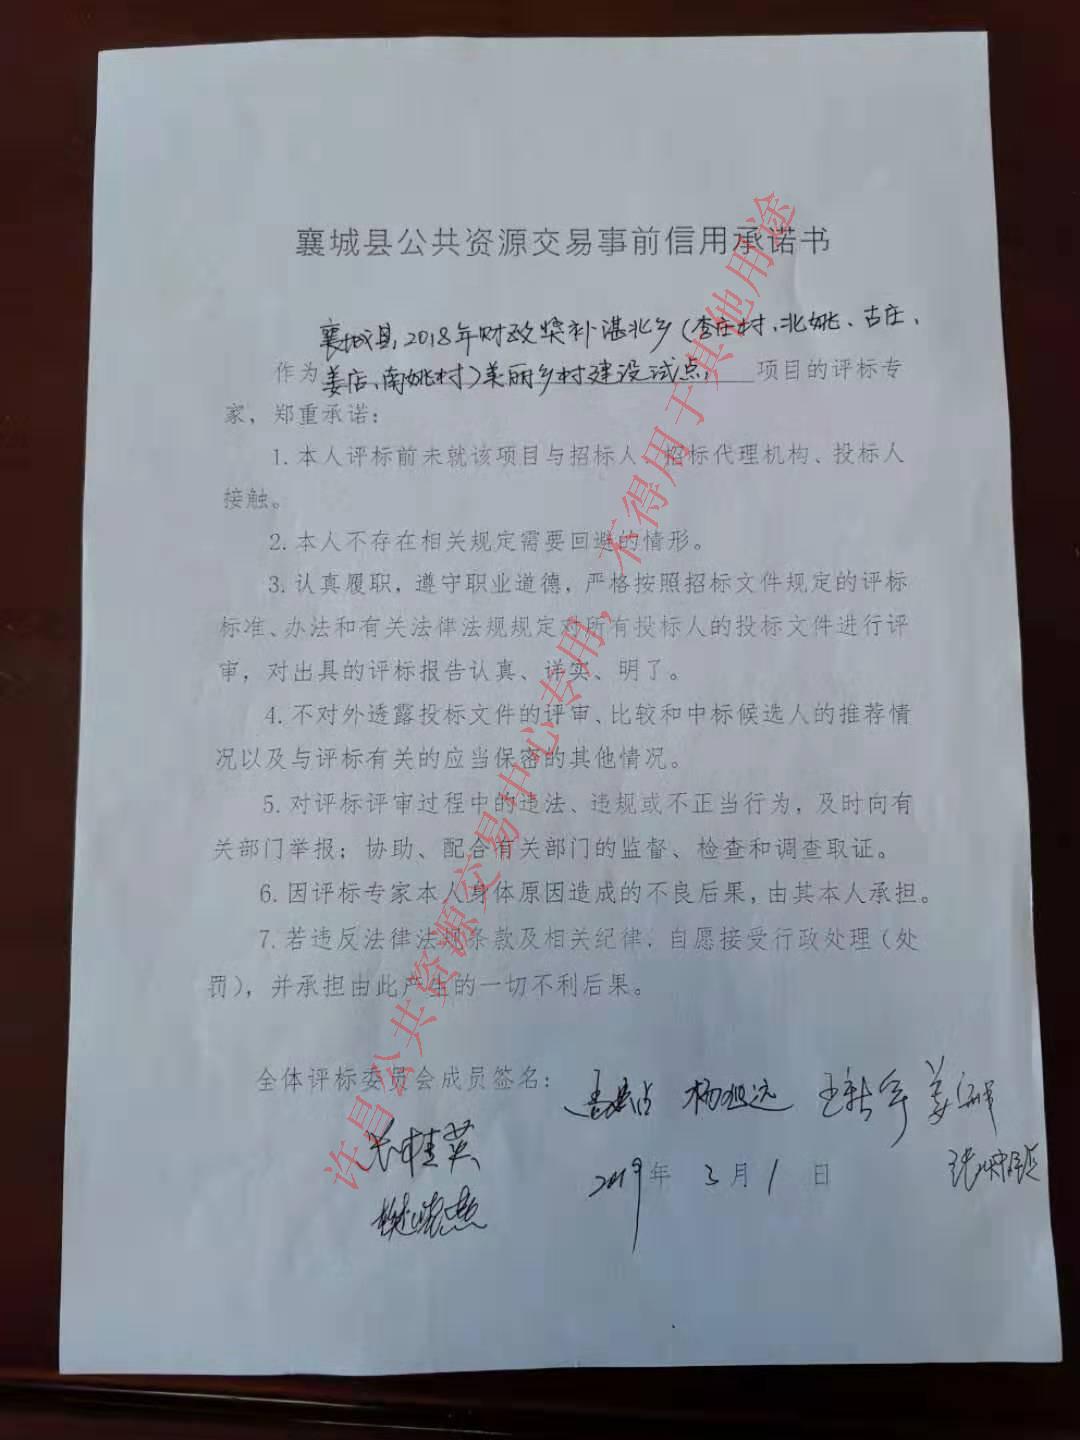 襄城县公共资源交易事前信用承诺书
襄城县2018年财政奖补湛北乡(李庄村、北姚、古庄、
作为姜店、南姚村)美丽乡村建设试点 项目的评标专
家，郑重承诺：
1.本人评标前未就该项目与招标人、招标代理机构、投标人
接触。
2.本人不存在相关规定需要回避的情形。
3.认真履职，遵守职业道德，严格按照招标文件规定的评标
标准、办法和有关法律法规规定对所有投标人的投标文件进行评
审，对出具的评标报告认真、详实、明了。
4.不对外透露投标文件的评审、比较和中标候选人的推荐情
况以及与评标有关的应当保密的其他情况。
5.对评标评审过程中的违法、违规或不正当行为，及时向有
关部门举报；协助、配合有关部门的监督、检查和调查取证。
6.因评标专家本人身体原因造成的不良后果，由其本人承担。
7.若违反法律法规条款及相关纪律，自愿接受行政处理(处
罚)，并承担由此产生的一切不利后果。
全体评标委员会成员签名： 杨旭远
桂英
2019年3月1日
许昌公共资源交易中心专用，不得用于其他用途